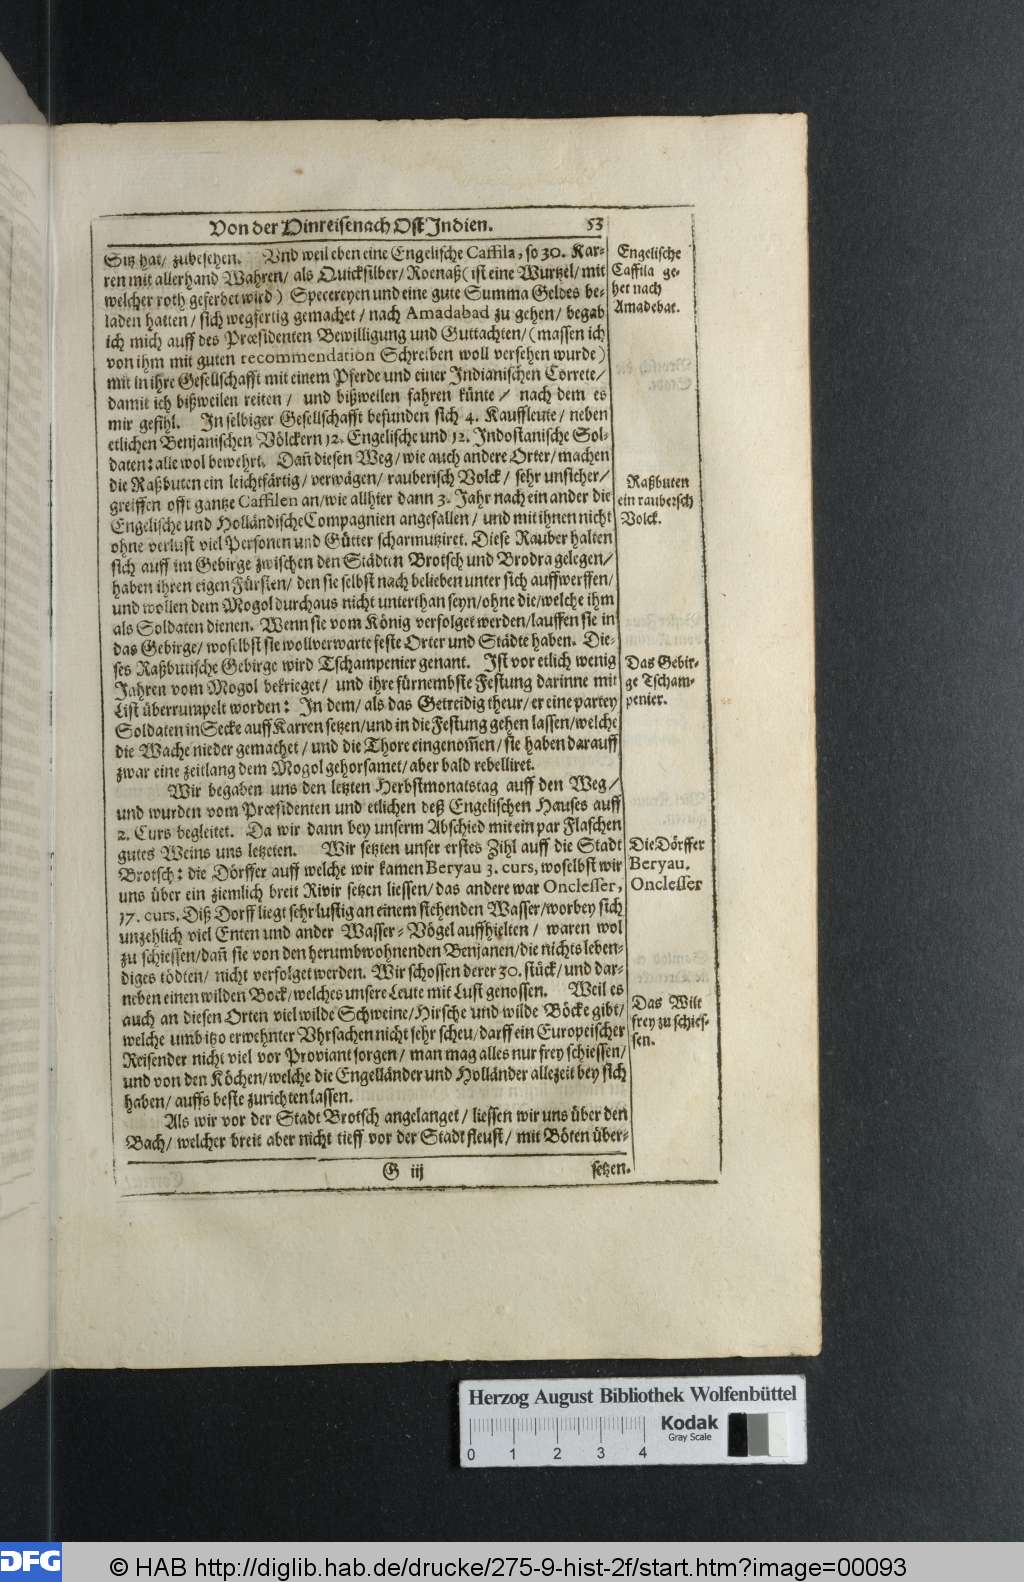 Von der Hinreise nach Ost Indien. 53
Sitz hat/ zubesehen. Vnd weil eben eine Engelische Caffila, so 30. Kar-
ren mit allerhand Wahren/ als Quicksilber/ Roenaß (ist eine Wurtzel/ mit
welcher roth geferbet wird) Specereyen und eine gute Summa Geldes be-
laden hatten/ sich wegfertig gemachet/ nach Amadabad zu gehen/ begab
ich mich auff des Præsidenten Bewilligung und Guttachten/ (massen ich
von ihm mit guten recommendation Schreiben woll versehen wurde)
mit in ihre Gesellschafft mit einem Pferde und einer Indianischen Correte/
damit ich bißweilen reiten/ und bißweilen fahren künte/ nach dem es
mir gefihl. In selbiger Gesellschafft befunden sich 4. Kauffleute/ neben
etlichen Benjanischen Völckern 12. Engelische und 12. Indostanische Sol-
daten: alle wol bewehrt. Dañ diesen Weg/ wie auch andere Orter/ machen
die Raßbuten ein leichtfärtig/ verwägen/ rauberisch Volck/ sehr unsicher/
greiffen offt gantze Caffilen an/ wie allhier dann 3. Jahr nach ein ander die
Engelische und Holländische Compagnien angefallen/ und mit ihnen nicht
ohne verlust viel Personen und Gütter scharmutziret. Diese Rauber halten
sich auff im Gebirge zwischen den Städten Brotsch und Brodra gelegen/
haben ihren eigen Fürsten/ den sie selbst nach belieben unter sich auffwerffen/
und wollen dem Mogol durchaus nicht unterthan seyn/ ohne die/ welche ihm
als Soldaten dienen. Wenn sie vom König verfolget werden/ lauffen sie in
das Gebirge/ woselbst sie wollverwarte feste Orter und Städte haben. Die-
ses Raßbutische Gebirge wird Tschampenier genant. Ist vor etlich wenig
Jahren vom Mogol bekrieget/ und ihre fürnembste Festung darinne mit
List überrumpelt worden: In dem/ als das Getreidig theur/ er eine partey
Soldaten in Secke auff Karren setzen/ und in die Festung gehen lassen/ welche
die Wache nieder gemachet/ und die Thore eingenom̃en/ sie haben darauff
zwar eine zeitlang dem Mogol gehorsamet/ aber bald rebelliret.
Wir begaben uns den letzten Herbstmonatstag auff den Weg/
und wurden vom Præsidenten und etlichen deß Engelischen Hauses auff
2. Curs begleitet. Da wir dann bey unserm Abschied mit ein par Flaschen
gutes Weins uns letzeten. Wir setzten unser erstes Zihl auff die Stadt
Brotsch: die Dörffer auff welche wir kamen Beryau 3. curs, woselbst wir
uns über ein ziemlich breit Rivir setzen liessen/ das andere war Onclesser,
17. curs. Diß Dorff liegt sehr lustig an einem stehenden Wasser/ worbey sich
unzehlich viel Enten und ander Wasser-Vögel auffhielten/ waren wol
zu schiessen/ dañ sie von den herumbwohnenden Benjanen/ die nichts leben-
diges tödten/ nicht verfolget werden. Wir schossen derer 30. stück/ und dar-
neben einen wilden Bock/ welches unsere Leute mit Lust genossen. Weil es
auch an diesen Orten viel wilde Schweine/ Hirsche und wilde Böcke gibt/
welche umb itzo erwehnter Vhrsachen nicht sehr scheu/ darff ein Europeischer
Reisender nicht viel vor Proviant sorgen/ man mag alles nur frey schiessen/
und von den Köchen/ welche die Engelländer und Holländer allezeit bey sich
haben/ auffs beste zurichten lassen.
Als wir vor der Stadt Brotsch angelanget/ liessen wir uns über den
Bach/ welcher breit aber nicht tieff vor der Stadt fleust/ mit Böten über-
G iij setzen.
Engelische
Caffila ge-
het nach
Amadebat.
Raßbuten
ein raubersch
Volck.
Das Gebir-
ge Tscham-
penier.
Die Dörffer
Beryau.
Onclesser
Das Wilt
frey zu schies-
sen.
Herzog August Bibliothek Wolfenbüttel
0 1 2 3 4
Kodak
Gray Scale
DFG
© HAB http://diglib.hab.de/drucke/275-9-hist-2f/start.htm?image=00093